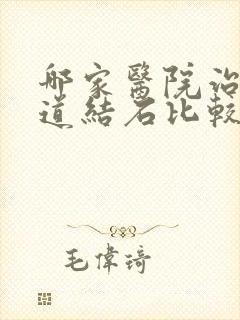 那家醫院治
道結石比較
毛偉琦